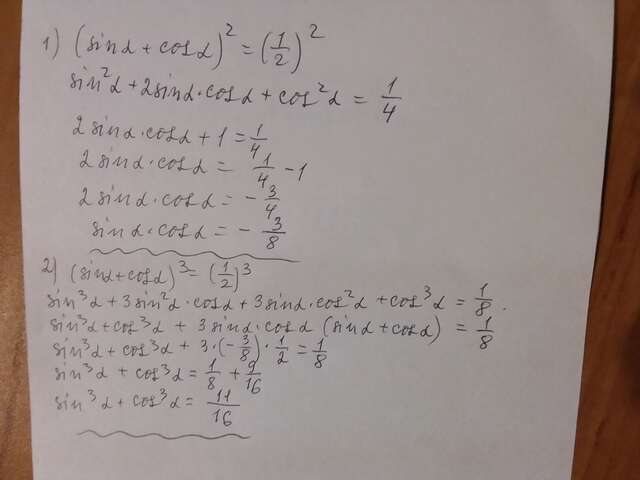 1) (sinα + cosα)² = (1/2)²
sin²α + 2sinα·cosα + cos²α = 1/4
2sinα·cosα + 1 = 1/4
2sinα·cosα = 1/4 - 1
2sinα·cosα = - 3/4
sinα·cosα = - 3/8
2) (sinα + cosα)³ = (1/2)³
sin³α + 3sin²α·cosα + 3sinα·cos²α + cos³α = 1/8.
sin³α + cos³α + 3sinα·cosα (sinα + cosα) = 1/8
sin³α + cos³α + 3·(-3/8)·1/2 = 1/8
sin³α + cos³α = 1/8 + 9/16
sin³α + cos³α = 11/16